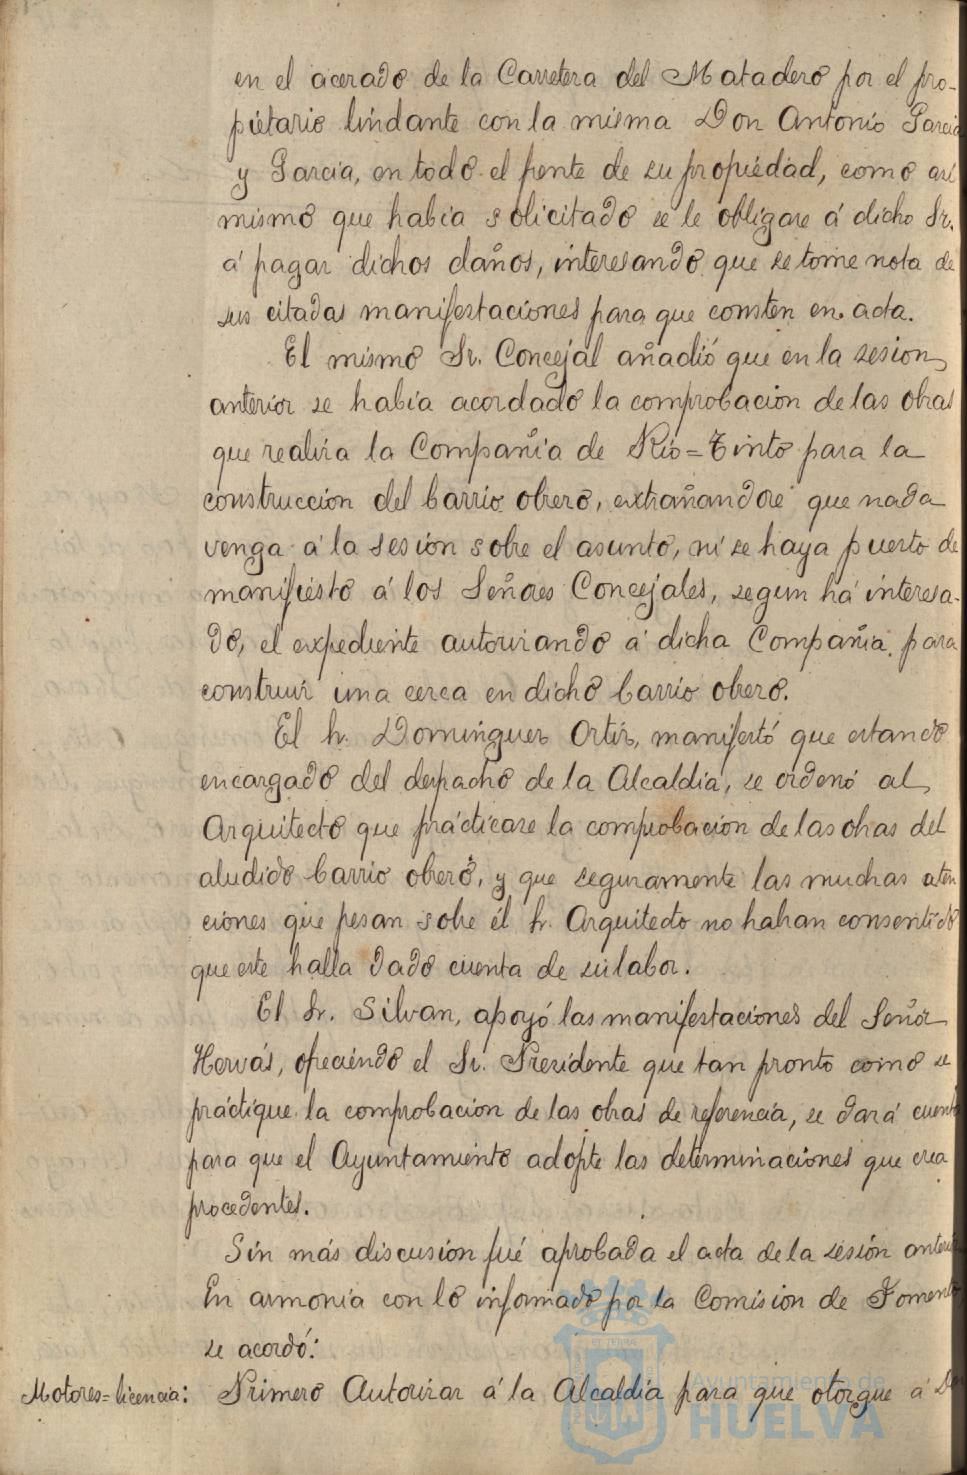 en el acerado de la Carretera del Matadero por el pro-
pietario lindante con la misma Don Antonio Garcia
y Garcia, en todo el frente de su propiedad, como asi
mismo que habia solicitado se le obligase á dicho Sr.
á pagar dichos daños, interesando que se tome nota de
sus citadas manifestaciones para que consten en acta.
El mismo Sr. Concejal añadió que en la sesion
anterior se habia acordado la comprobacion de las obras
que realiza la Compañia de Rio=Tinto para la
construccion del barrio obrero, extrañandose que nada
venga á la sesion sobre el asunto, ni se haya puesto de
manifiesto á los Señores Concejales, segun há interesa-
do, el expediente autorizando á dicha Compañia para
construir una cerca en dicho barrio obrero.
El Sr. Dominguez Ortiz, manifestó que estando
encargado del despacho de la Alcaldia, se ordenó al
Arquitecto que practicase la comprobacion de las obras del
aludido barrio obrero, y que seguramente las muchas aten
ciones que pesan sobre él Sr. Arquitecto no habran consentido
que este halla dado cuenta de su labor.
El Sr. Silvan, apoyó las manifestaciones del Señor
Hervás, ofreciendo el Sr. Presidente que tan pronto como se
practique la comprobacion de las obras de referencia, se dará cuenta
para que el Ayuntamiento adopte las determinaciones que crea
procedentes.
Sin más discusion fué aprobada el acta de la sesión anterior
En armonia con lo informado por la Comision de Fomento
se acordó:
Motores=licencia: Primero Autorizar á la Alcaldia para que otorgue á Don
Ayuntamiento de
HUELVA